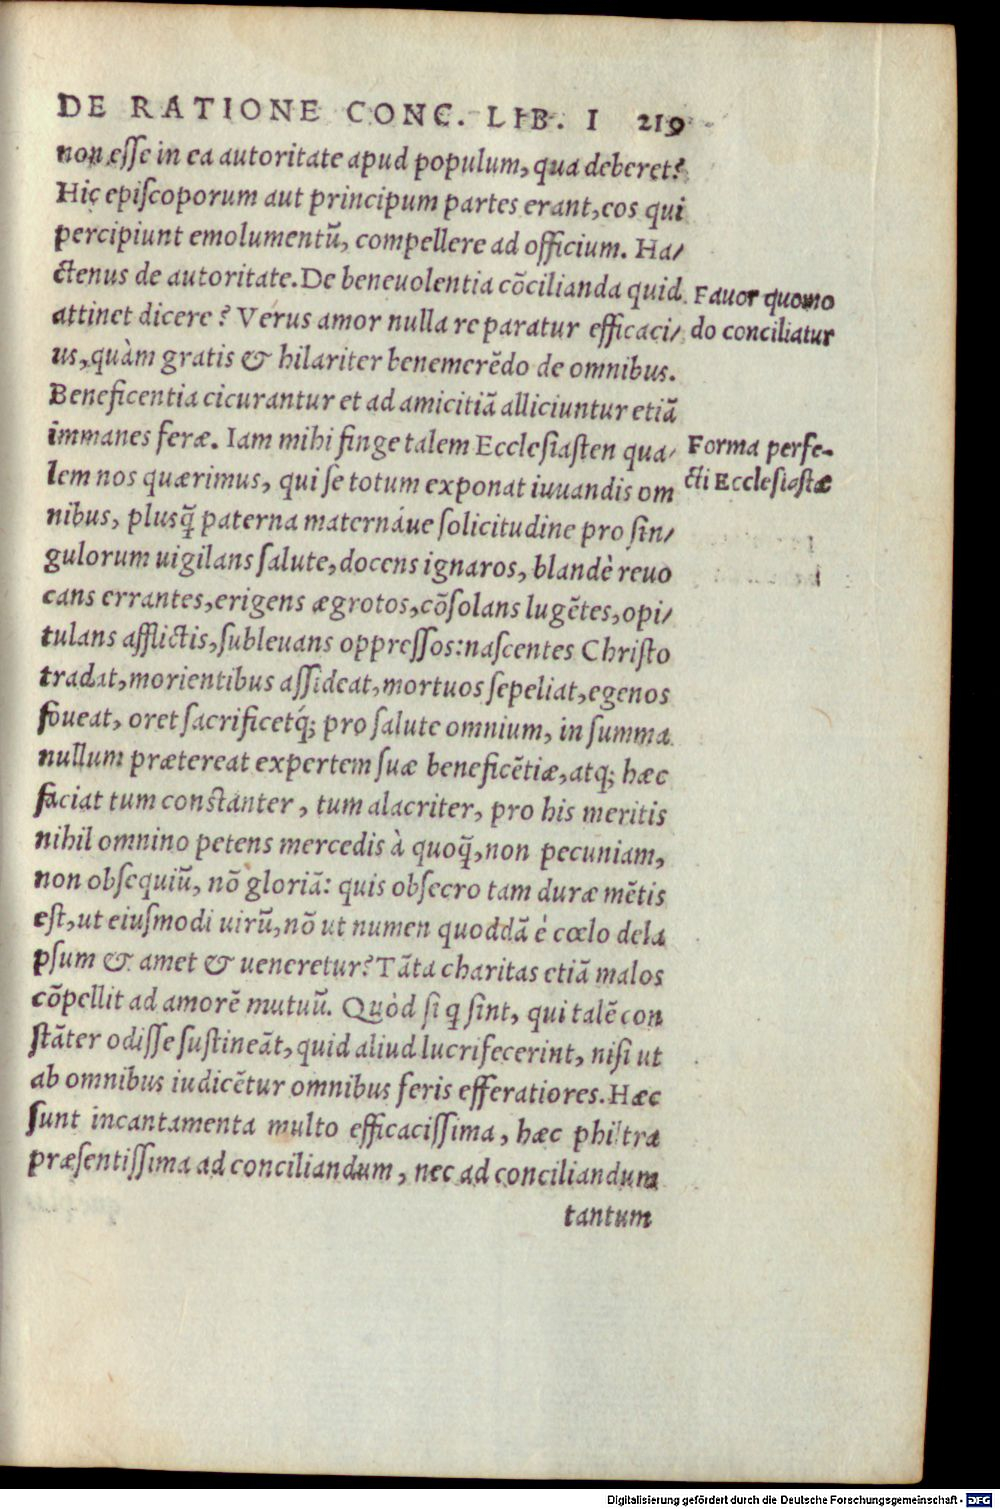 DE RATIONE CONC. LIB. I 219
non esse in ea autoritate apud populum, qua deberet?
Hic episcoporum aut principum partes erant, eos qui
percipiunt emolumentũ, compellere ad officium. Ha/
ctenus de autoritate. De beneuolentia cõcilianda quid
Fauor quomo
attinet dicere? Verus amor nulla re paratur efficaci/
do conciliatur
us, quàm gratis & hilariter benemerẽdo de omnibus.
Beneficentia cicurantur et ad amicitiã alliciuntur etiã
immanes feræ. Iam mihi finge talem Ecclesiasten qua/
Forma perfe-
lem nos quærimus, qui se totum exponat iuuandis om
cti Ecclesiastæ
nibus, plusq̃ paterna maternáue solicitudine pro sin/
gulorum uigilans salute, docens ignaros, blandè reuo
cans errantes, erigens ægrotos, cõsolans lugẽtes, opi/
tulans afflictis, subleuans oppressos: nascentes Christo
tradat, morientibus assideat, mortuos sepeliat, egenos
foueat, oret sacrificetq́; pro salute omnium, in summa
nullum prætereat expertem suæ beneficẽtiæ, atq; hæc
faciat tum constanter, tum alacriter, pro his meritis
nihil omnino petens mercedis à quoq̃, non pecuniam,
non obsequiũ, nõ gloriã: quis obsecro tam duræ mẽtis
est, ut eiusmodi uirũ, nõ ut numen quoddã è cœlo dela
psum & amet & ueneretur? Tãta charitas etiã malos
cõpellit ad amorẽ mutuũ. Quòd si q sint, qui talẽ con
stãter odisse sustineãt, quid aliud lucrifecerint, nisi ut
ab omnibus iudicẽtur omnibus feris efferatiores. Hæc
sunt incantamenta multo efficacissima, hæc philtra
præsentissima ad conciliandum, nec ad conciliandum
tantum
Digitalisierung gefördert durch die Deutsche Forschungsgemeinschaft - DFG